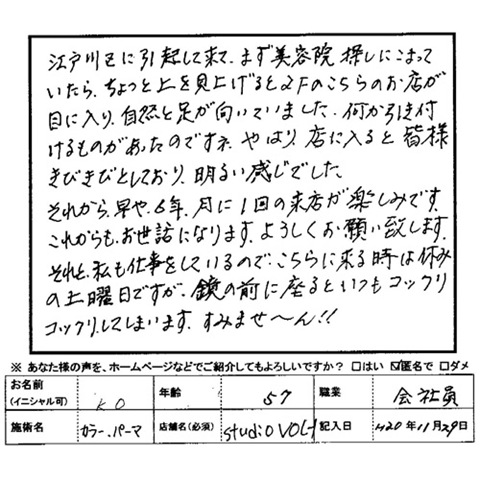 江戸川区に引起して来て、まず美容院探しにこまって
いたら、ちょっと上を見上げると2Fのこちらのお店が
目に入り、自然と足が向いていました。何か引き付
けるものがあったのですネ。やはり、店に入ると皆様
きびきびとしており、明るい感じでした。
それから、早や、6年、月に1回の来店が楽しみです。
これからも、お世話になります。よろしくお願い致します。
それと、私も仕事をしているので、こちらに来る時は休み
の土曜日ですが、鏡の前に座るといつもコックリ
コックリしてしまいます。すみませ〜ん!!
※ あなた様の声を、ホームページなどでご紹介してもよろしいですか? □はい ☑匿名で □ダメ
お名前 (イニシャル可) K O 年齢 57 職業 会社員
施術名 カラー、パーマ 店舗名(必須) studio VOL-1 記入日 H20年11月29日